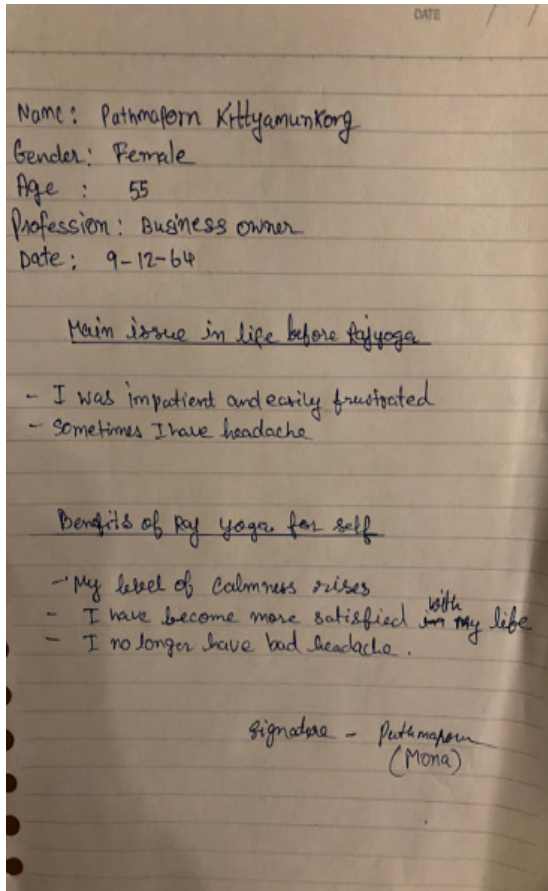 DATE / /
Name: Pathmaporn Kittyamunkong
Gender: Female
Age : 55
Profession: Business owner
Date: 9-12-64
Main issue in life before Rajyoga
- I was impatient and easily frustrated
- Sometimes I have headache
Benefits of Raj yoga for self
- My level of calmness rises
- I have become more satisfied with my life
- I no longer have bad headache.
Signature - Pathmaporn
(Mona)